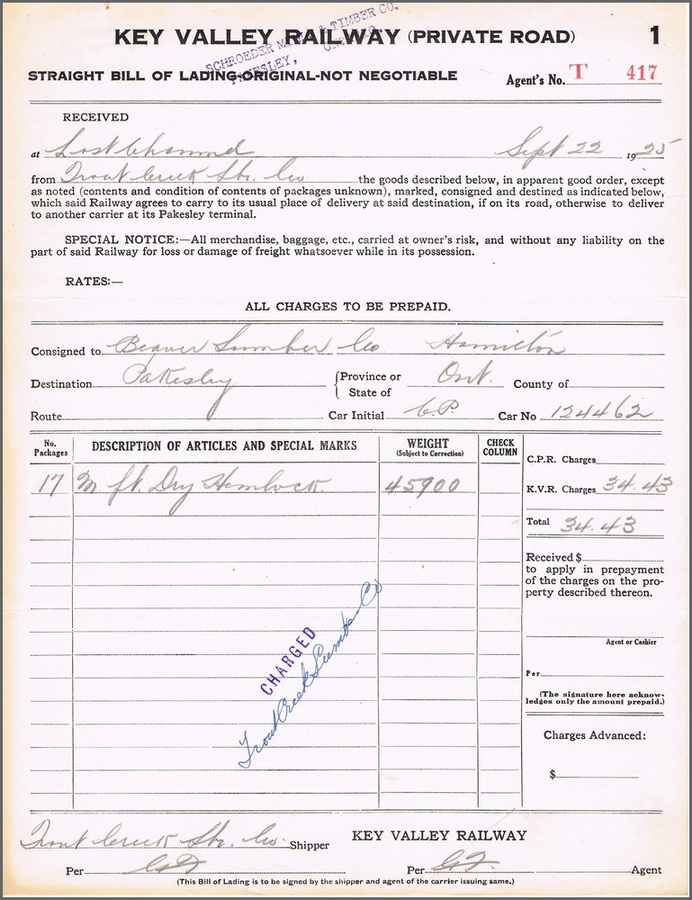 KEY VALLEY RAILWAY (PRIVATE ROAD) 1
SCHROEDER MILLS & TIMBER CO.
PAKESLEY, ONTARIO.
STRAIGHT BILL OF LADING-ORIGINAL-NOT NEGOTIABLE
Agent's No. T 417
RECEIVED
at Lost Channel Sept 22 1925
from Trout Creek Str. Co the goods described below, in apparent good order, except
as noted (contents and condition of contents of packages unknown), marked, consigned and destined as indicated below,
which said Railway agrees to carry to its usual place of delivery at said destination, if on its road, otherwise to deliver
to another carrier at its Pakesley terminal.
SPECIAL NOTICE:—All merchandise, baggage, etc., carried at owner's risk, and without any liability on the
part of said Railway for loss or damage of freight whatsoever while in its possession.
RATES:—
ALL CHARGES TO BE PREPAID.
Consigned to Beaver Lumber Co. Hamilton
Destination Pakesley Province or State of Ont. County of
Route Car Initial C.P. Car No 124462
No. Packages DESCRIPTION OF ARTICLES AND SPECIAL MARKS WEIGHT (Subject to Correction) CHECK COLUMN
17 M ft. Dry Hemlock. 45900
C.P.R. Charges
K.V.R. Charges 34.43
Total 34.43
Received $
to apply in prepayment
of the charges on the pro-
perty described thereon.
Agent or Cashier
Per
(The signature here acknow-
ledges only the amount prepaid.)
Charges Advanced:
$
CHARGED
Trout Creek Lumber Co
Trout Creek Str. Co. Shipper KEY VALLEY RAILWAY
Per Per Agent
(This Bill of Lading is to be signed by the shipper and agent of the carrier issuing same.)